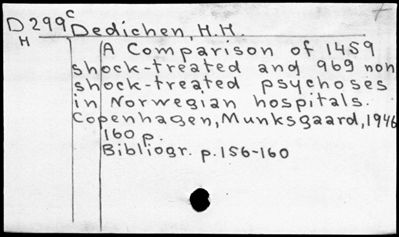 D299c Dedichen, H.H.
H
A Comparison of 1459
shock-treated and 969 non
shock-treated psychoses
in Norwegian hospitals.
Copenhagen, Munksgaard, 1946
160 p.
Bibliogr. p. 156-160